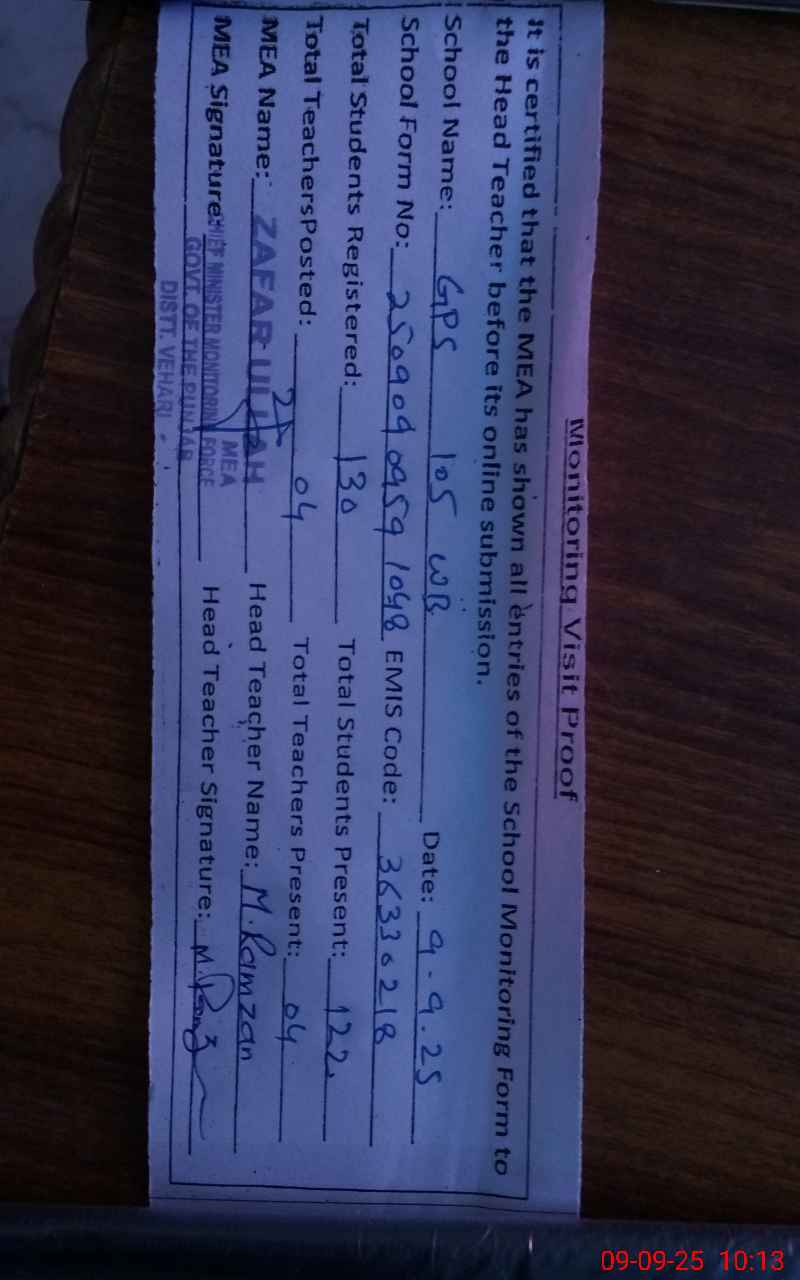 Monitoring Visit Proof
It is certified that the MEA has shown all entries of the School Monitoring Form to
the Head Teacher before its online submission.
School Name: GPS 105 WB Date: 9.9.25
School Form No: 2509090959 1048 EMIS Code: 36330218
Total Students Registered: 130 Total Students Present: 122
Total TeachersPosted: 04 Total Teachers Present: 04
MEA Name: ZAFAR ULLAH Head Teacher Name: M. Ramzan
MEA
MEA Signature: CHIEF MINISTER MONITORING FORCE Head Teacher Signature: M. Ramzan
GOVT. OF THE PUNJAB
DISTT. VEHARI
09-09-25 10:13